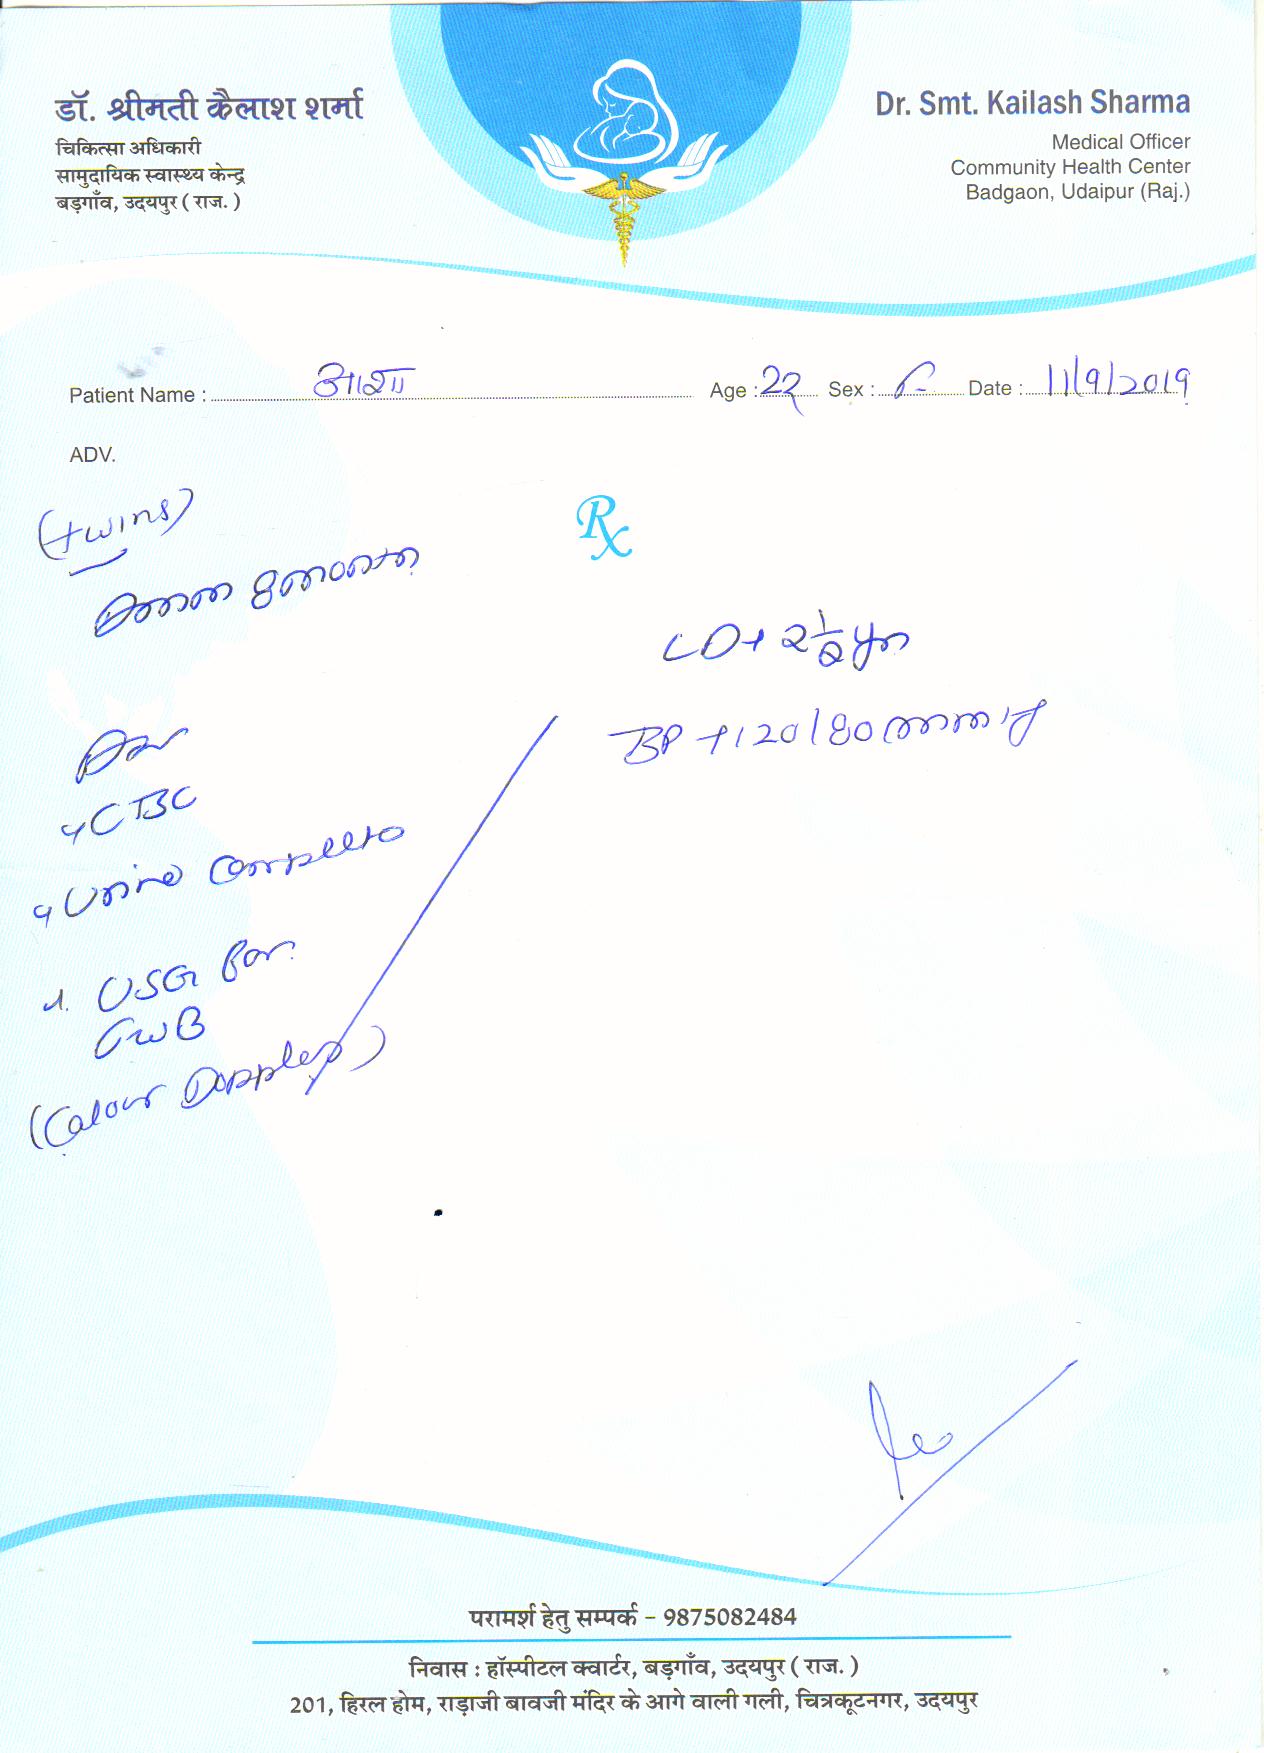 डॉ. श्रीमती कैलाश शर्मा
चिकित्सा अधिकारी
सामुदायिक स्वास्थ्य केन्द्र
बड़गाँव, उदयपुर ( राज. )
Dr. Smt. Kailash Sharma
Medical Officer
Community Health Center
Badgaon, Udaipur (Raj.)
Patient Name : आशा Age : 22 Sex : Date : 11/9/2019
ADV.
(twins)
Rx
BP 120/80
CBC
Urine Complete
USG for
(Colour Doppler)
परामर्श हेतु सम्पर्क - 9875082484
निवास : हॉस्पीटल क्वार्टर, बड़गाँव, उदयपुर ( राज. )
201, हिरल होम, राड़ाजी बावजी मंदिर के आगे वाली गली, चित्रकूटनगर, उदयपुर